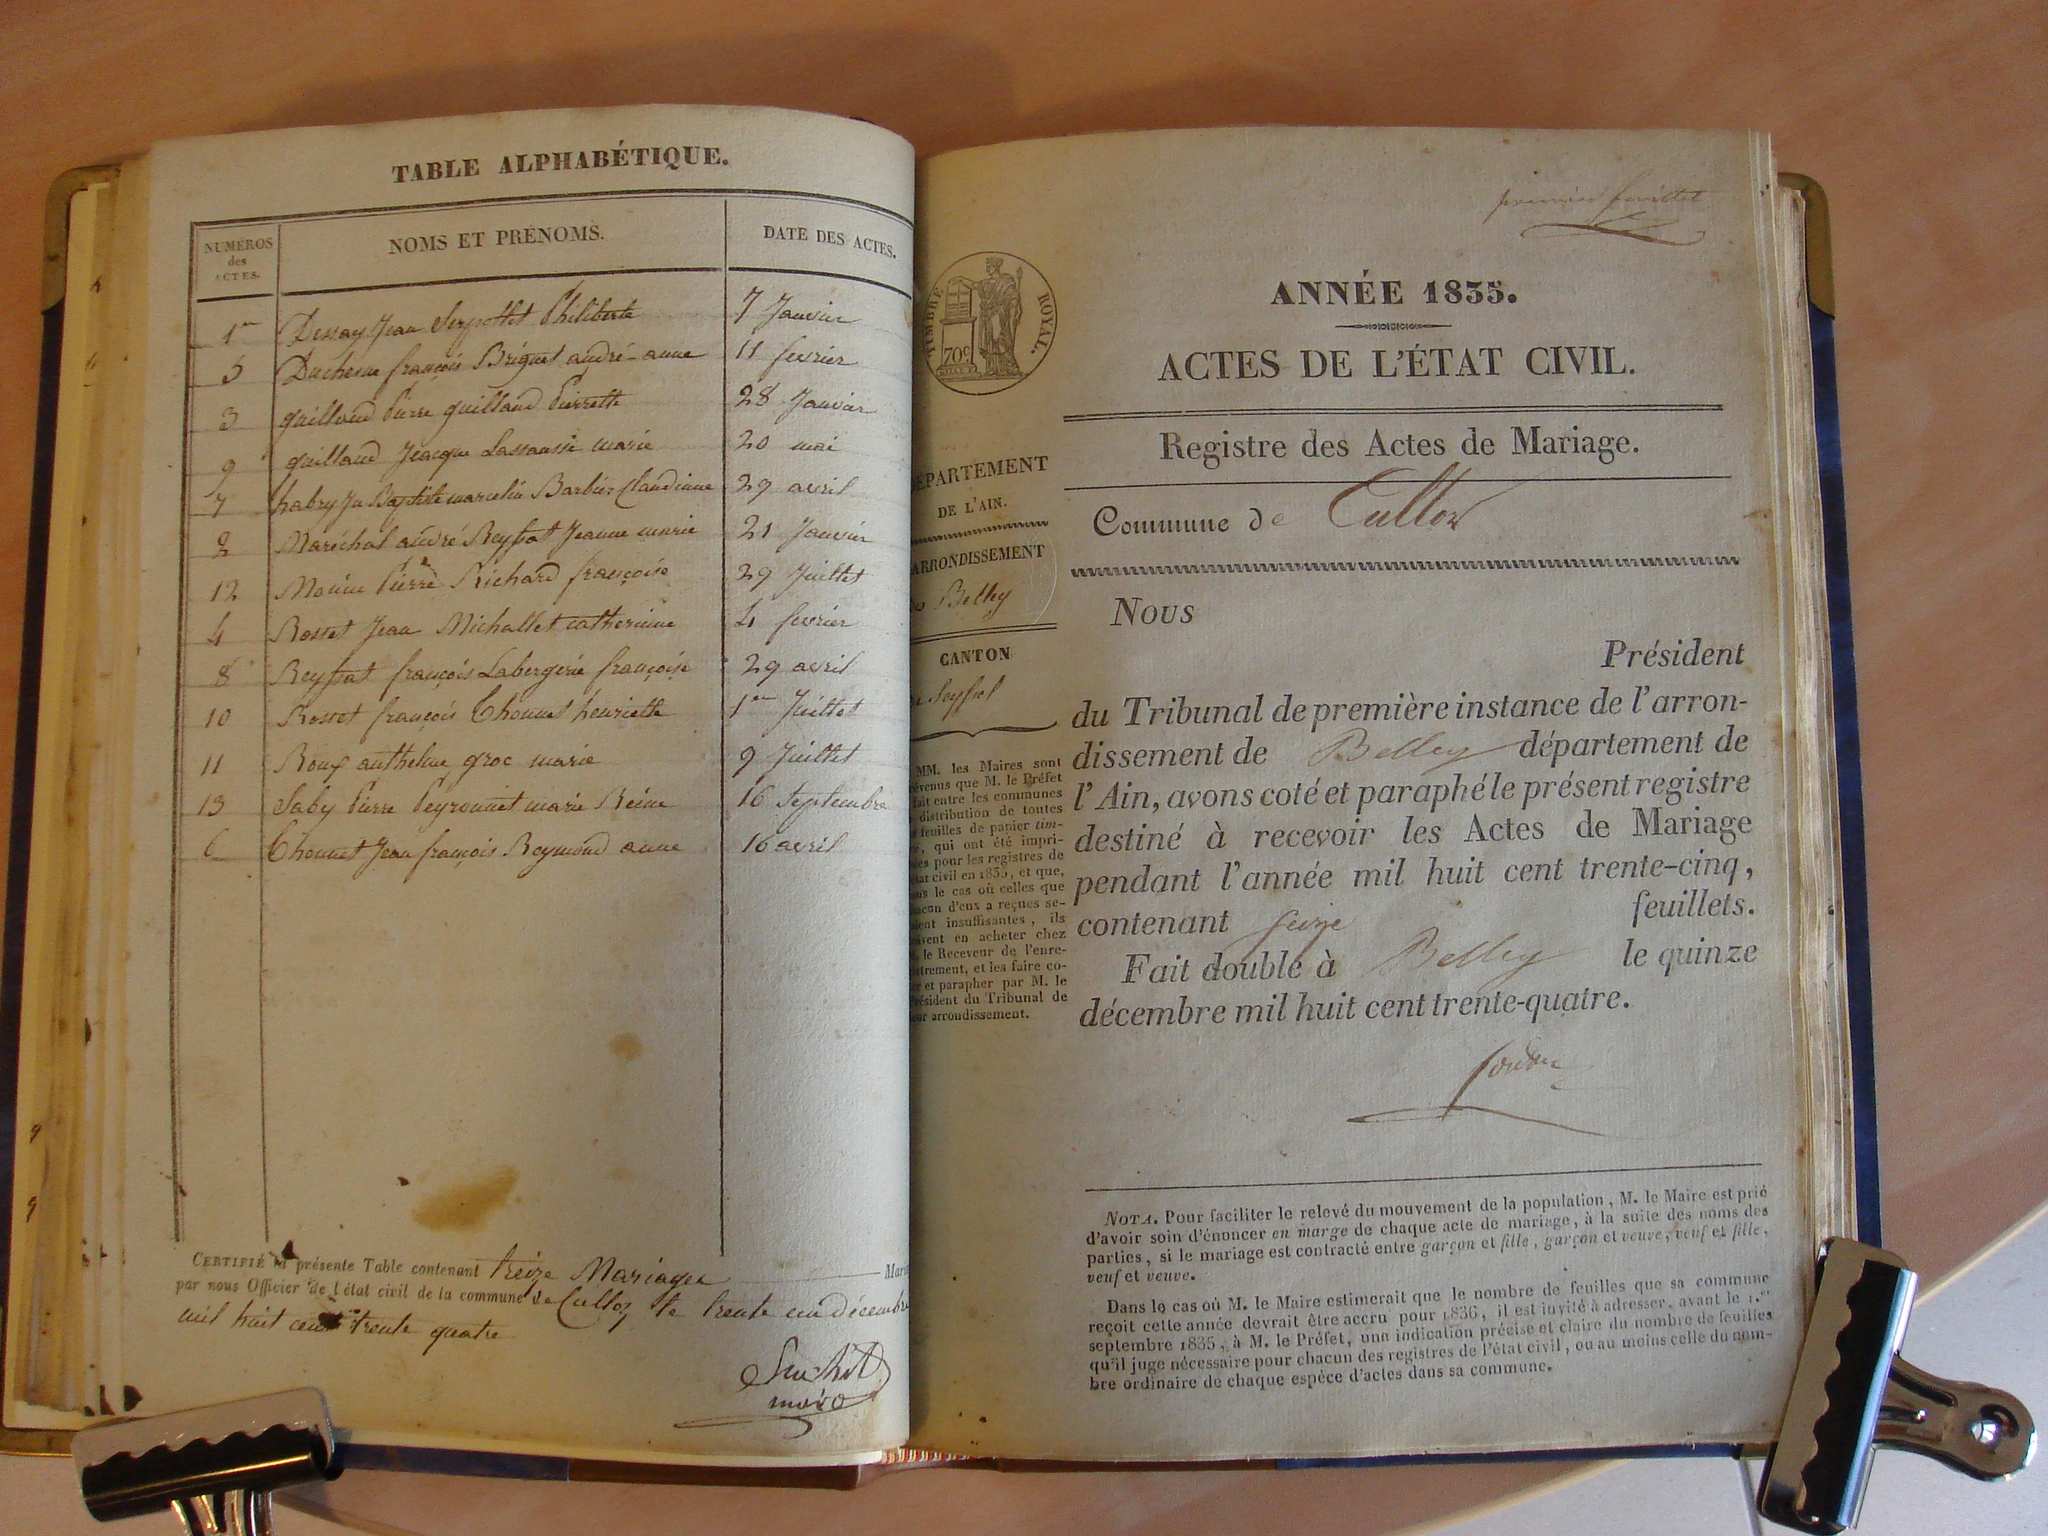 TABLE ALPHABÉTIQUE.
NUMÉROS des ACTES. NOMS ET PRÉNOMS. DATE DES ACTES.
1er Dessay Jean Serpollet Philiberte 7 Janvier
5 Duchesne françois Briguet andré-anne 11 fevrier
3 guilland Pierre guilland Pierrette 28 Janvier
9 guilland Jacque Lassausse marie 20 mai
7 habry Jn Baptiste marcelin Barbier Claudinne 29 avril
2 Maréchal andré Reybat Jeanne marie 21 Janvier
12 Pierre Richard françoise 29 Juillet
4 Rosset Jean Michallet catherinne 4 fevrier
8 françois Labergerie françoise 29 avril
10 Rosset françois Chonnet henriette 1er Juillet
11 Roux anthelme groc marie 9 Juillet
13 Saby Pierre Peyronnet marie Reine 16 Septembre
6 Chonnet Jean françois Reymond anne 16 avril
CERTIFIÉ la présente Table contenant treize Mariages
par nous Officier de l'état civil de la commune de Culloz le trente un décembre
mil huit cent trente quatre
maire
premier feuillet
TIMBRE ROYAL.
70c
ANNÉE 1835.
ACTES DE L'ÉTAT CIVIL.
Registre des Actes de Mariage.
Commune de Culloz
DÉPARTEMENT
DE L'AIN.
ARRONDISSEMENT
de Belley
CANTON
de Seyssel
MM. les Maires sont
prévenus que M. le Préfet
fait entre les communes
distribution de toutes
feuilles de papier tim-
, qui ont été impri-
mées pour les registres de
état civil en 1835, et que,
dans le cas où celles que
chacun d'eux a reçues se-
raient insuffisantes, ils
doivent en acheter chez
M. le Receveur de l'enre-
gistrement, et les faire co-
ter et parapher par M. le
Président du Tribunal de
leur arrondissement.
Nous
Président
du Tribunal de première instance de l'arron-
dissement de Belley département de
l'Ain, avons coté et paraphé le présent registre
destiné à recevoir les Actes de Mariage
pendant l'année mil huit cent trente-cinq,
contenant seize feuillets.
Fait double à Belley le quinze
décembre mil huit cent trente-quatre.
NOTA. Pour faciliter le relevé du mouvement de la population, M. le Maire est prié
d'avoir soin d'énoncer en marge de chaque acte de mariage, à la suite des noms des
parties, si le mariage est contracté entre garçon et fille, garçon et veuve, veuf et fille,
veuf et veuve.
Dans le cas où M. le Maire estimerait que le nombre de feuilles que sa commune
reçoit cette année devrait être accru pour 1836, il est invité à adresser, avant le 1.er
septembre 1835, à M. le Préfet, une indication précise et claire du nombre de feuilles
qu'il juge nécessaire pour chacun des registres de l'état civil, ou au moins celle du nom-
bre ordinaire de chaque espèce d'actes dans sa commune.